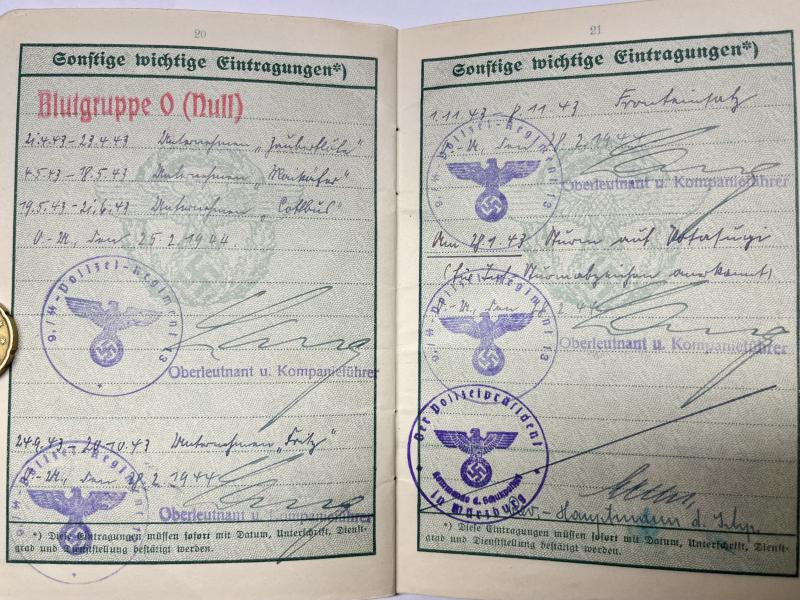 20
Sonstige wichtige Eintragungen*)
Blutgruppe O (Null)
21.4.43 - 23.4.43 Unternehmen „Zauberflöte“
4.5.43 - 18.5.43 Unternehmen „Maikäfer“
19.5.43 - 21.6.43 Unternehmen „Cottbus“
O.-U., den 25.2.1944.
9./SS-Polizei-Regiment 13
Oberleutnant u. Kompanieführer
24.9.43 - 20.10.43 Unternehmen „Fritz“
O.-U., den 1944
9./SS-Polizei-Regiment 13
Oberleutnant u. Kompanieführer
*) Diese Eintragungen müssen sofort mit Datum, Unterschrift, Dienst-
grad und Dienststellung bestätigt werden.
21
Sonstige wichtige Eintragungen*)
1.11.43 - 8.11.43 Fronteinsatz
O.-U., den 28.2.1944
9./SS-Polizei-Regiment 13
Oberleutnant u. Kompanieführer
Am 28.1.43 Sturm auf
(für Inf. Sturmabzeichen anerkannt)
O.-U., den 44
9./SS-Polizei-Regiment 13
Oberleutnant u. Kompanieführer
Der Polizeipräsident
Kommando d. Schutzpolizei
in Marburg
Rev.-Hauptmann d. Schp.
*) Diese Eintragungen müssen sofort mit Datum, Unterschrift, Dienst-
grad und Dienststellung bestätigt werden.